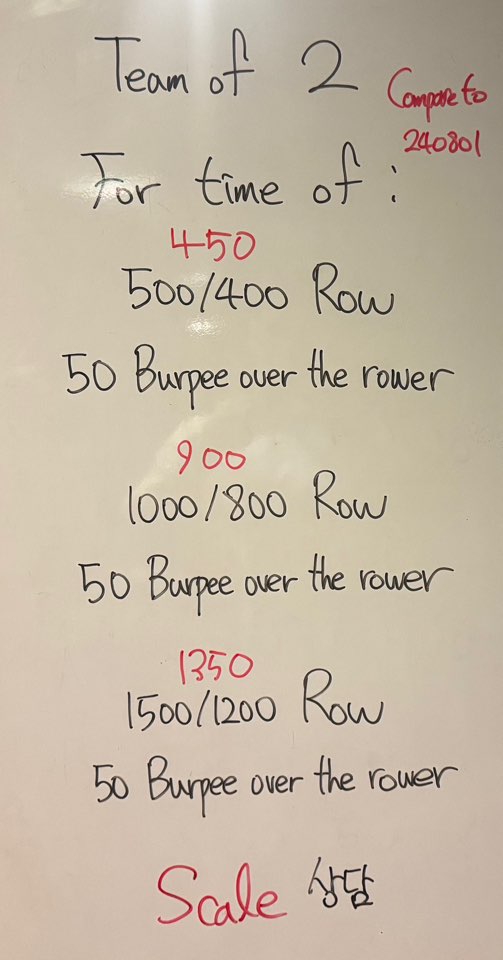 Team of 2
Compare to
240801
For time of :
450
500/400 Row
50 Burpee over the rower
900
1000/800 Row
50 Burpee over the rower
1350
1500/1200 Row
50 Burpee over the rower
Scale 상담